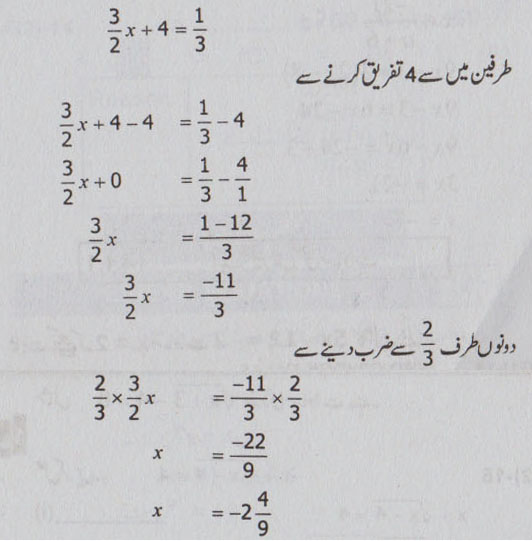 3/2 x + 4 = 1/3
طرفین میں سے 4 تفریق کرنے سے
3/2 x + 4 − 4 = 1/3 − 4
3/2 x + 0 = 1/3 − 4/1
3/2 x = (1 − 12)/3
3/2 x = −11/3
دونوں طرف 2/3 سے ضرب دینے سے
2/3 × 3/2 x = −11/3 × 2/3
x = −22/9
x = −2 4/9